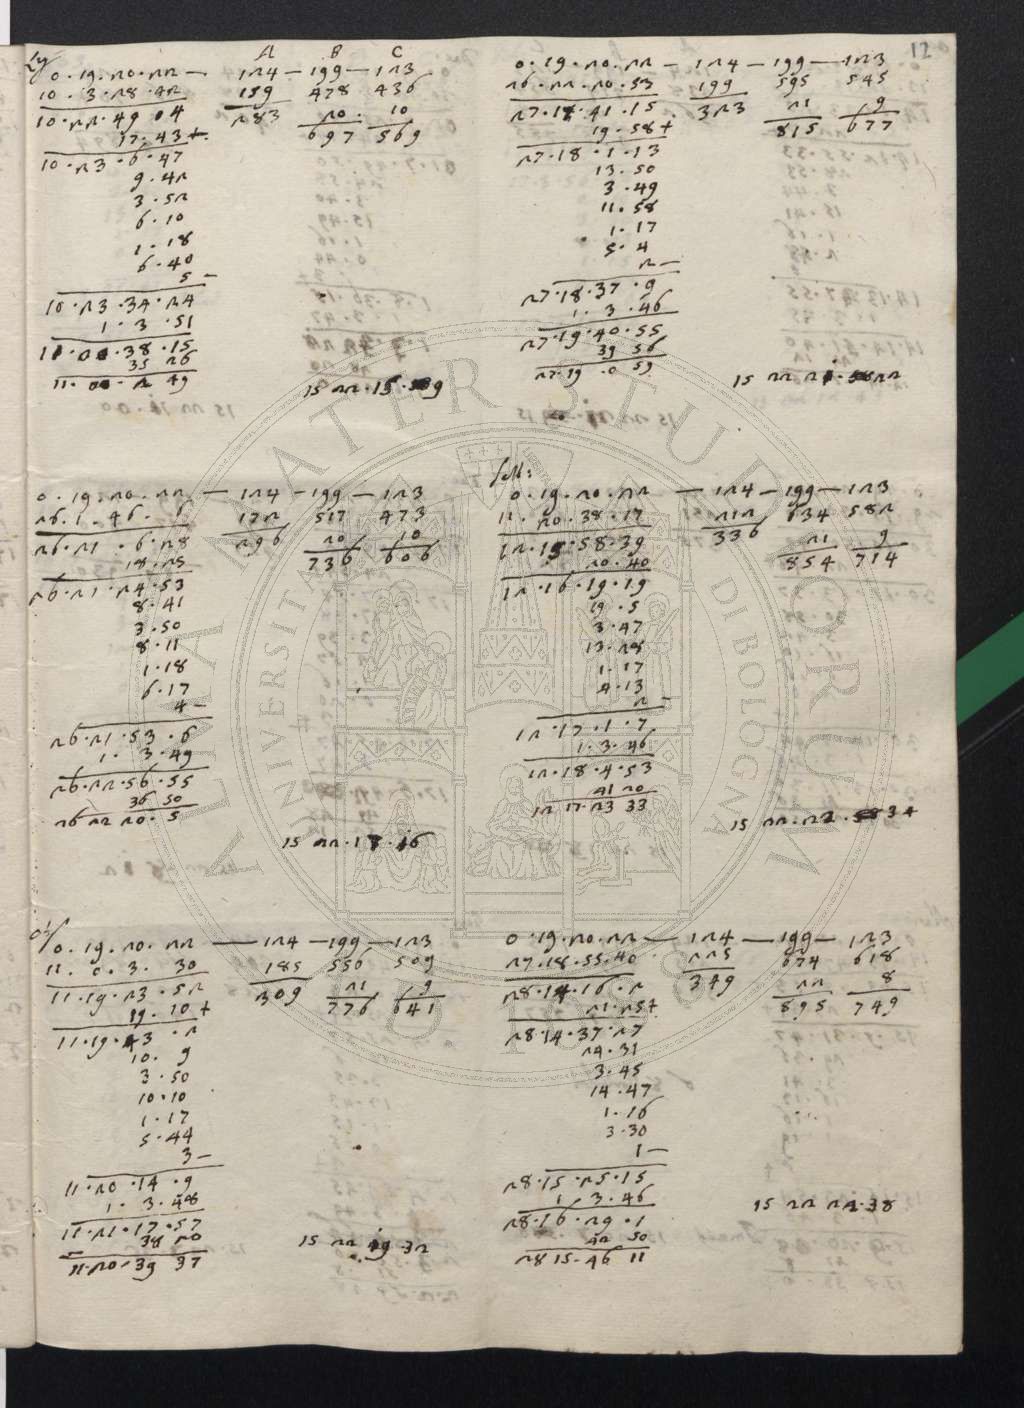 12
A B C
0.19.20.22 — 124 — 199 — 123
10.3.28.42 159 478 436
10.22.49 04 283 20 10
17.43 + 697 569
10.23.6.47
9.42
3.52
6.10
1.18
6.40
5 —
10.23.34.24
1.3.51
11.00.38.15
35 26
11.00.2 49
15 22.15
0.19.20.22 — 124 — 199 — 123
26.22.20.53 199 595 545
27.17.41.15 323 21 9
19.58 + 815 677
27.18.1.13
13.50
3.49
11.58
1.17
5.4
2 —
27.18.37.9
1.3.46
27.19.40.55
39 56
27.19.0 59
15 22 21
0.19.20.22 — 124 — 199 — 123
26.1.46.6 172 517 473
26.21.6.28 296 20 10
18.25 736 606
26.21.24.53
8.41
3.50
8.11
1.18
6.17
4 —
26.21.53.6
1.3.49
26.22.56.55
36 50
26 22 20.5
15 22.18.16
0.19.20.22 — 124 — 199 — 123
11.20.38.17 212 634 582
12.15.58.39 336 21 9
20.40 854 714
12.16.19.19
19.5
3.47
13.28
1.17
4.13
2 —
12.17.1.7
1.3.46
12.18.4.53
41 20
12 17 23 33
15 22.22.34
0.19.20.22 — 124 — 199 — 123
11.0.3.30 185 556 509
11.19.23.52 309 21 9
19.10 + 776 641
11.19.43.2
10.9
3.50
10.10
1.17
5.44
3 —
11.20.14.9
1.3.48
11.21.17.57
38 20
11.20.39 37
15 22 19.32
0.19.20.22 — 124 — 199 — 123
27.18.55.40 225 674 618
28.14.16.2 349 22 8
21.25+ 895 749
28.14.37.27
24.31
3.45
14.47
1.16
3.30
1 —
28.15.25.15
1.3.46
28.16.29.1
42 50
28 15.46 11
15 22 22.38
ALMA MATER STUDIORUM
UNIVERSITÀ DI BOLOGNA